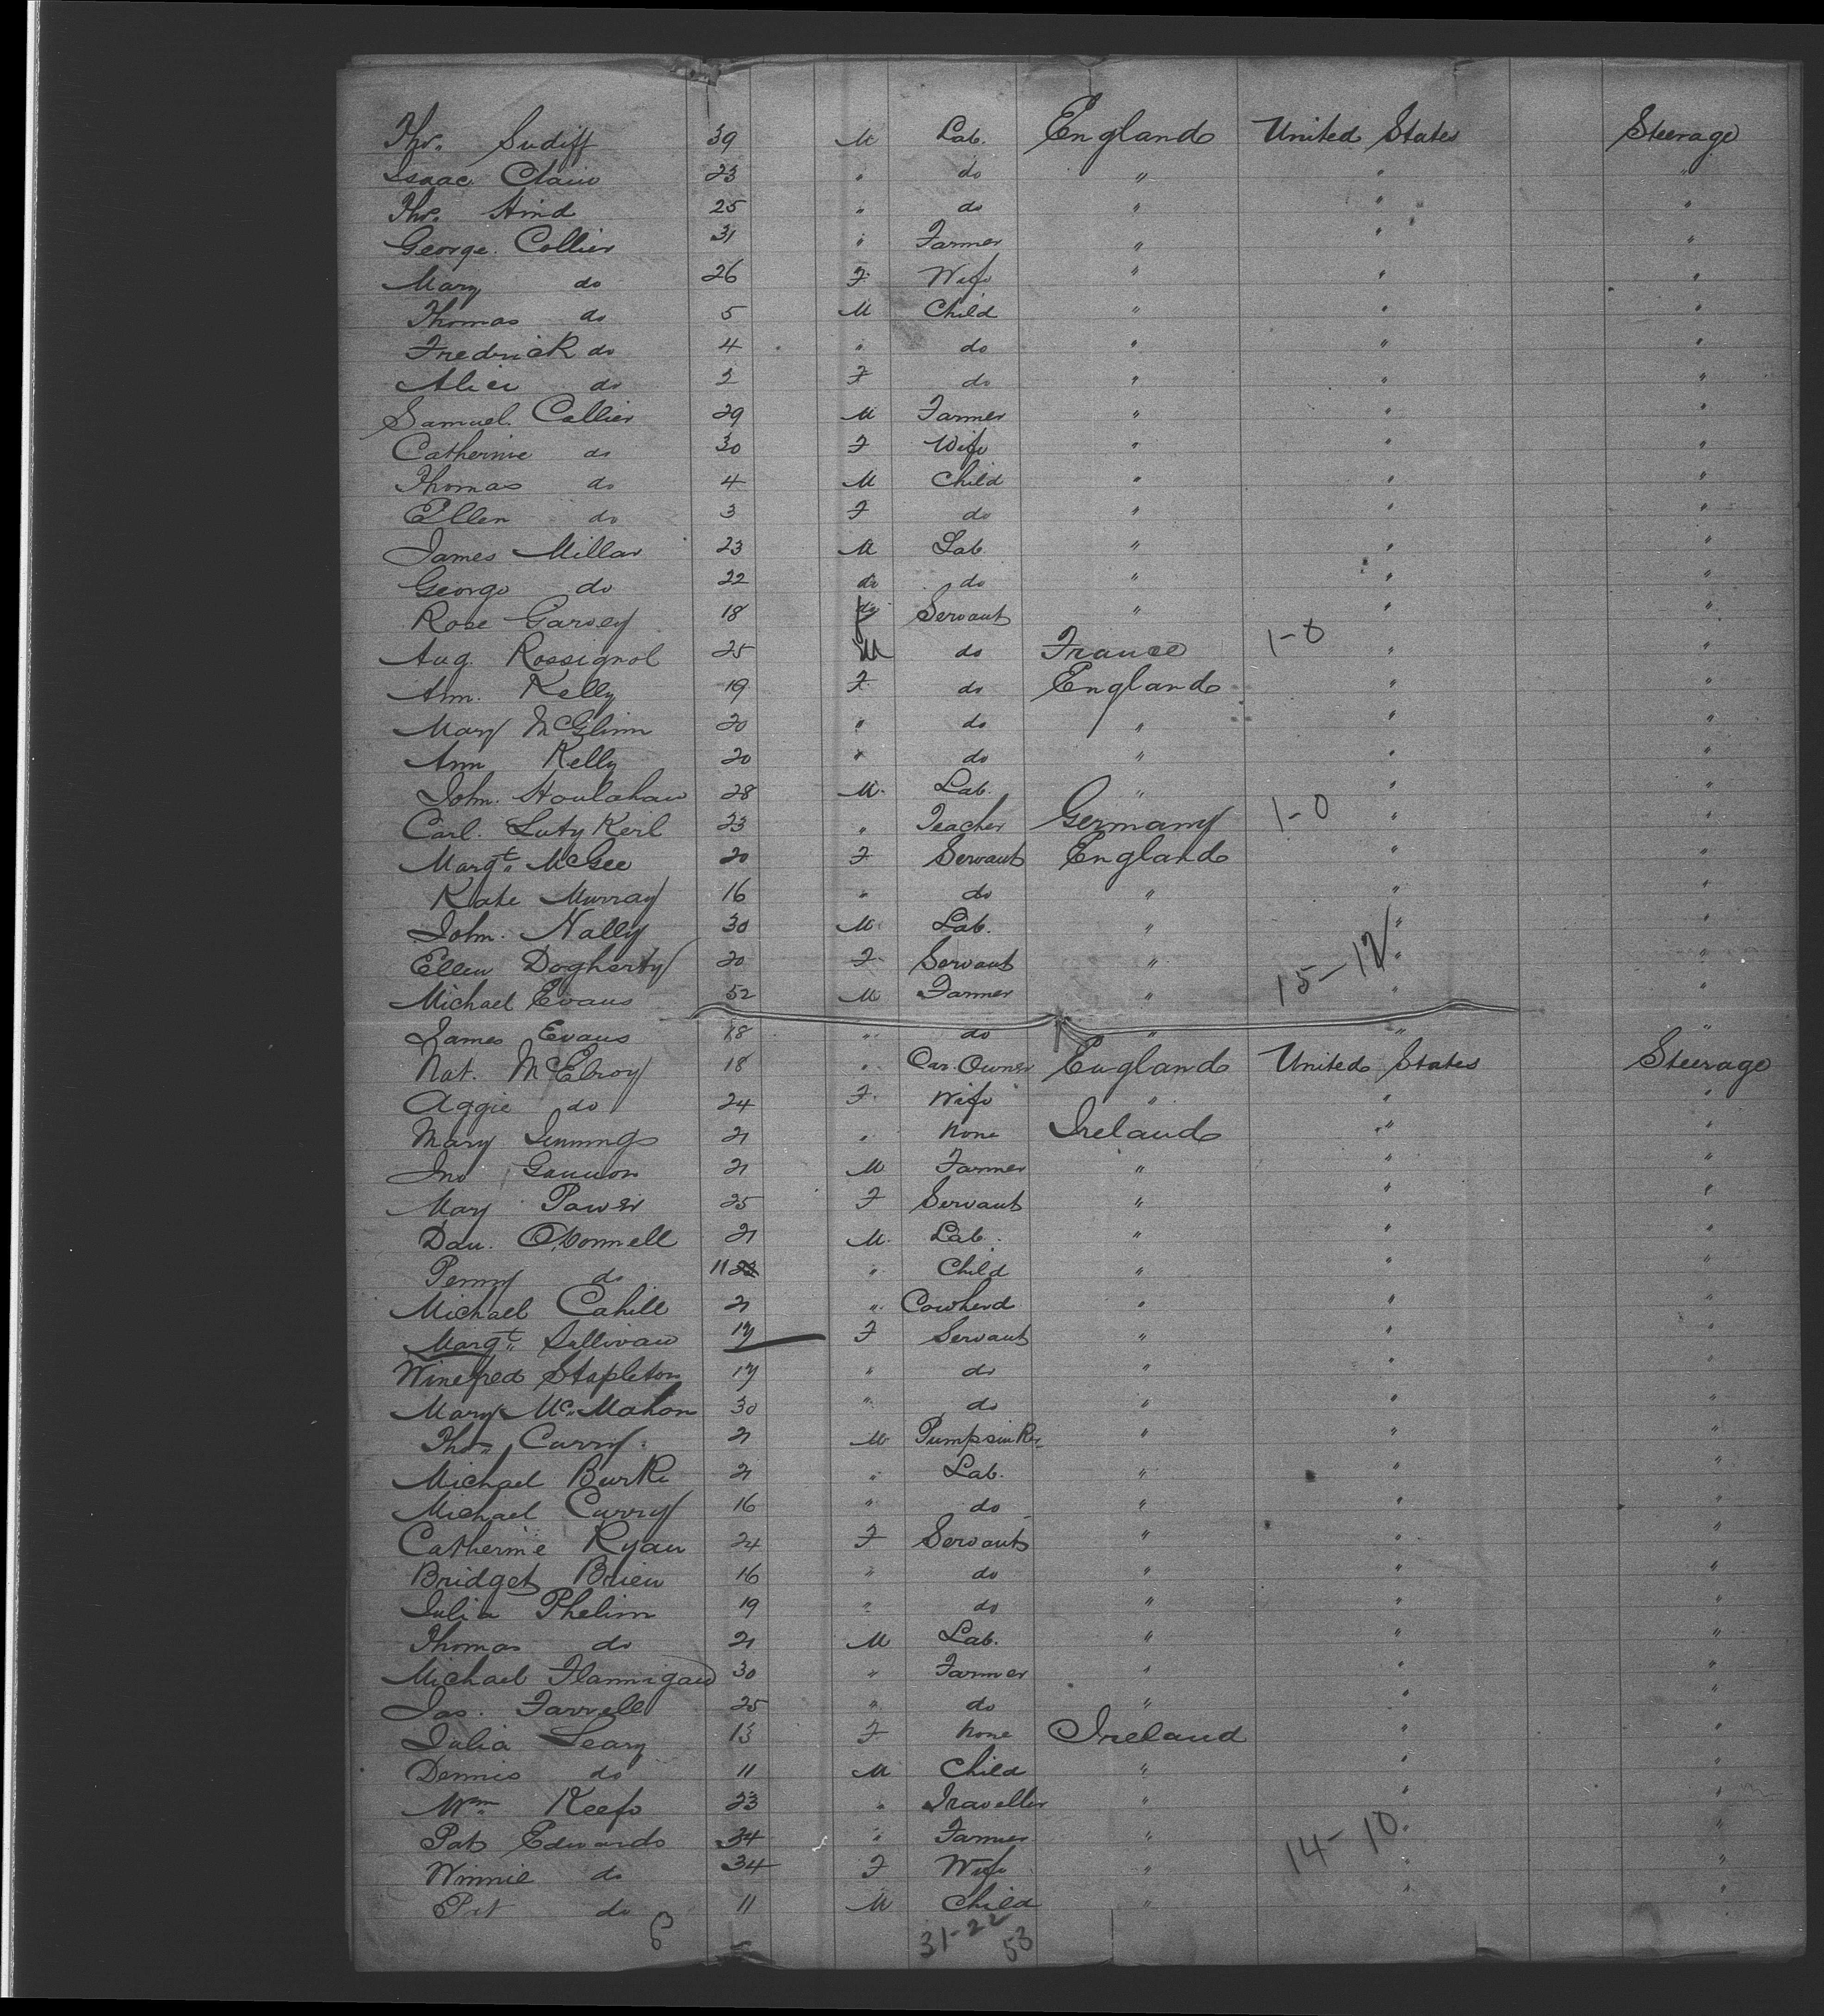 Thos. Sudiff 39 M Lab. England United States Steerage
Isaac Claiw 23 " do " " "
Thos. Hind 25 " do " " "
George Collier 31 " Farmer " " "
Mary do 26 F Wife " " "
Thomas do 5 M Child " " "
Fredrick do 4 " do " " "
Alice do 2 F do " " "
Samuel Collier 29 M Farmer " " "
Catherine do 30 F Wife " " "
Thomas do 4 M Child " " "
Ellen do 3 F do " " "
James Millar 23 M Lab " " "
George do 22 do do " " "
Rose Garvey 18 F Servant " " "
Aug. Rossignol 25 M do France 1-0 " "
Ann. Kelly 19 F do England " "
Mary McGlinn 20 " do " " "
Ann Kelly 20 " do " " "
John. Houlahan 28 M. Lab. " " "
Carl. Luty Kerl 23 " Teacher Germany 1-0 " "
Margt. McGee 20 F Servant England " "
Kate Murray 16 " do " " "
John. Nally 30 M Lab. " " "
Ellen Dogherty 20 F Servant " " "
Michael Evans 52 M Farmer " 15-12 " "
James Evans 18 " do " " "
Nat. McElroy 18 " Car. Owner England United States Steerage
Aggie do 24 F. Wife " " "
Mary Jennings 21 " None Ireland " "
Jno Gannon 21 M Farmer " " "
Mary Power 25 F Servant " " "
Dan. O'Connell 21 M. Lab. " " "
Penny do 11 " Child " " "
Michael Cahill 21 " Cowherd " " "
Margt. Sullivan 17 F Servant " " "
Winefred Stapleton 17 " do " " "
Mary McMahon 30 " do " " "
Thos. Curry 21 M Pumpsinker " " "
Michael Burke 21 " Lab. " " "
Michael Curry 16 " do " " "
Catherine Ryan 24 F Servant " " "
Bridget Brien 16 " do " " "
Julia Phelim 19 " do " " "
Thomas do 21 M Lab. " " "
Michael Flannigan 30 " Farmer " " "
Jas. Farrell 25 " do " " "
Julia Leary 13 F None Ireland " "
Dennis do 11 M Child " " "
Wm. Keefe 23 " Traveller " " "
Pat Edwards 34 " Farmer " 14-10 " "
Winnie do 34 F Wife " " "
Pat do 11 M Child " " "
31-22 53